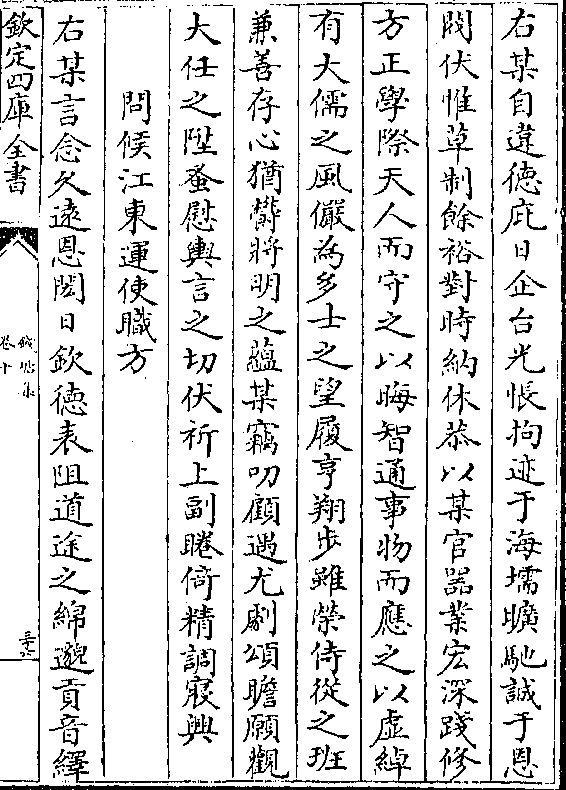 右某自違德庇日企台光悵拘迹于海壖曠馳誠于恩
閎伏惟草制餘裕對時納休恭以某官器業宏深踐修
方正學際天人而守之以晦智通事物而應之以虛綽
有大儒之風儼為多士之望履亨翔步雖榮侍從之班
兼善存心猶欝將明之蘊某竊叨顧遇尤劇頌瞻願觀
大任之陞蚤慰輿言之切伏祈上副睠倚精調寢興
問候江東運使職方
右某言念久遠恩閎日欽德表阻道途之綿邈貢音繹
欽定四庫全書
錢塘集
卷十
三十六